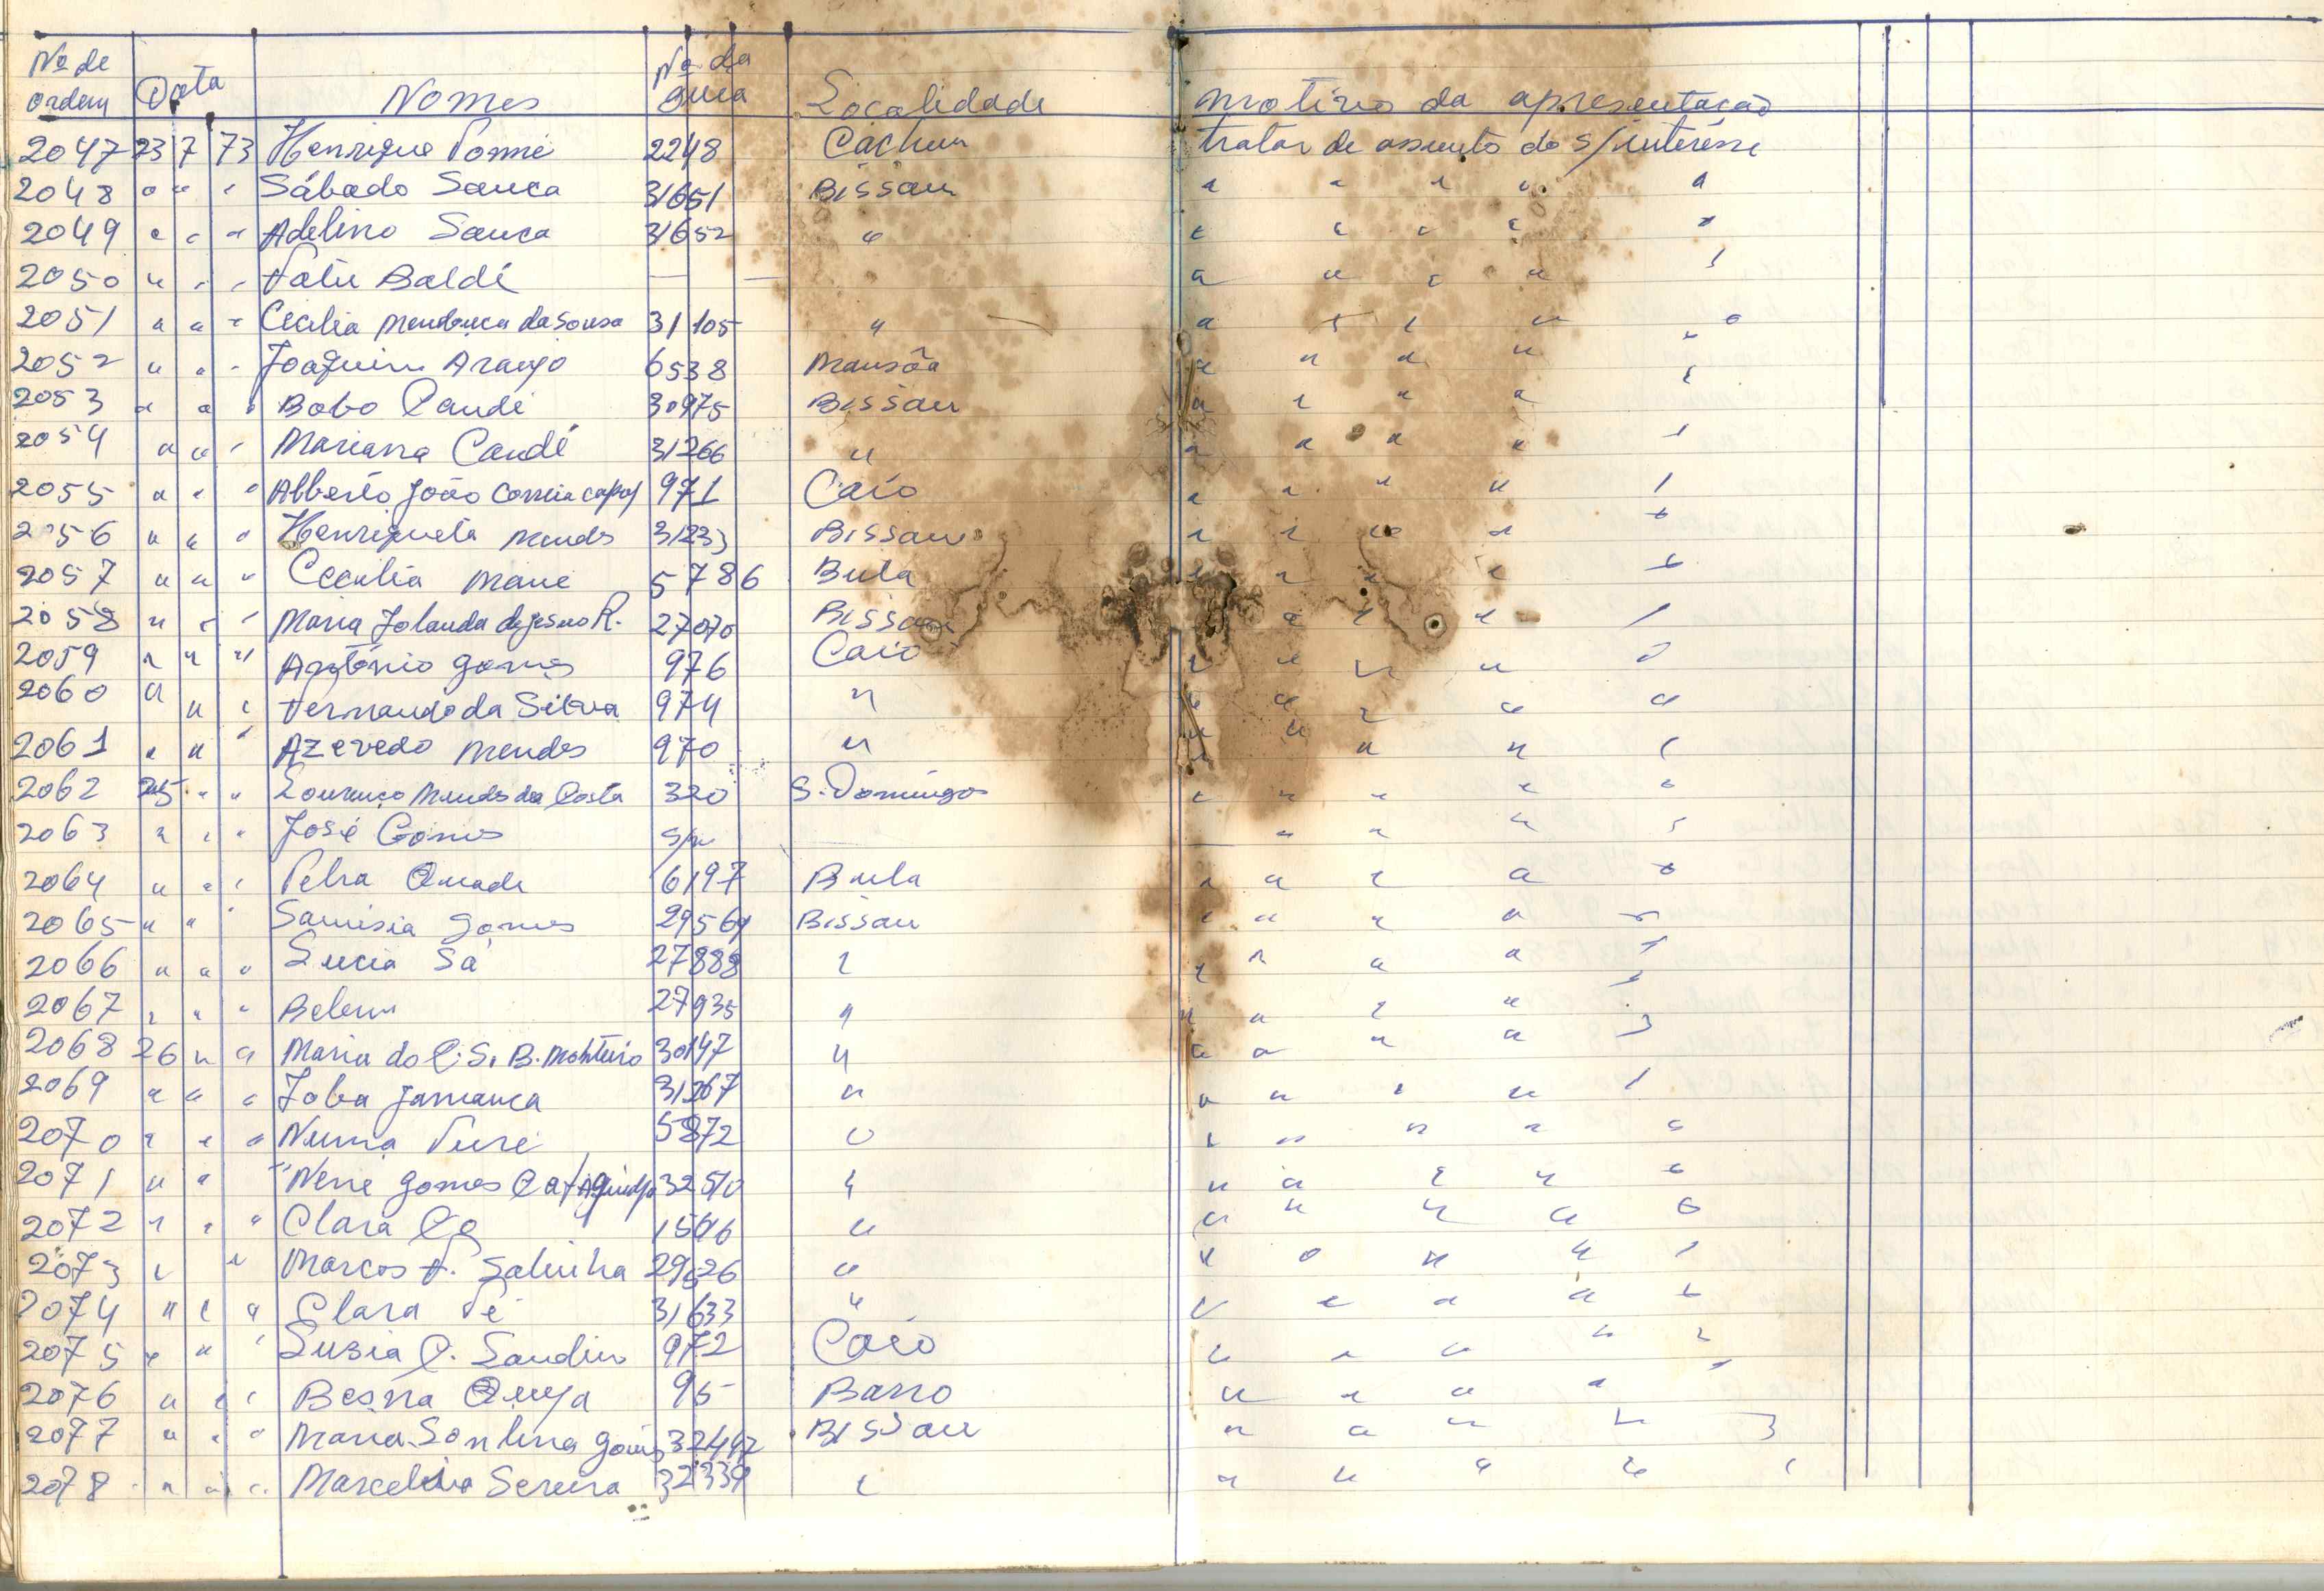 Nº de ordem Data Nomes Nº da Guia Localidade motivo da apresentação
2047 23 7 73 Henrique Tomé 2248 Cacheu tratar de assunto do s/interêsse
2048 " " " Sábado Sanca 31651 Bissau " " " " "
2049 " " " Adelino Sanca 31652 " " " " " "
2050 " " " Fatu Baldé — — " " " " "
2051 " " " Cecilia Mendonça da Sousa 31105 " " " " " "
2052 " " " Joaquim Araujo 6538 Mansôa " " " " "
2053 " " " Bobo Candé 30975 Bissau " " " " "
2054 " " " Mariana Candé 31266 " " " " " "
2055 " " " Alberto João Correia 971 Caió " " " " "
2056 " " " Henriqueta Mendes 31233 Bissau " " " " "
2057 " " " Cecilia Mané 5786 Bula " " " " "
2058 " " " Maria Jolanda de Jesus R. 27070 Bissau " " " "
2059 " " " António Gomes 976 Caió " " " " "
2060 " " " Fernando da Silva 974 " " " " " "
2061 " " " Azevedo Mendes 970 " " " " " "
2062 25 " " Lourenço Mendes da Costa 320 S. Domingos " " " " "
2063 " " " José Gomes s/n — " " " "
2064 " " " 6197 Bula " " " " "
2065 " " " Gomes 29569 Bissau " " " " "
2066 " " " Lucia Sá 27888 " " " " " "
2067 " " " Belem 27935 " " " " " "
2068 26 " " Maria do C. S. B. Monteiro 30147 " " " " " "
2069 " " " Joba Jamanca 31267 " " " " " "
2070 " " " Numa Turé 5872 " " " " " "
2071 " " " Nené Gomes 32510 " " " " " "
2072 " " " Clara Có 1516 " " " " " "
2073 " " Marcos F. Salinha 29626 " " " " " "
2074 " " " Clara Té 31633 " " " " " "
2075 " " " Luzia C. Landim 972 Caió " " " " "
2076 " " " Besna 95 Barro " " " " "
2077 " " " Maria Gomes 32447 Bissau " " " " "
2078 " " " Marcelino Sereira 32339 " " " " " "